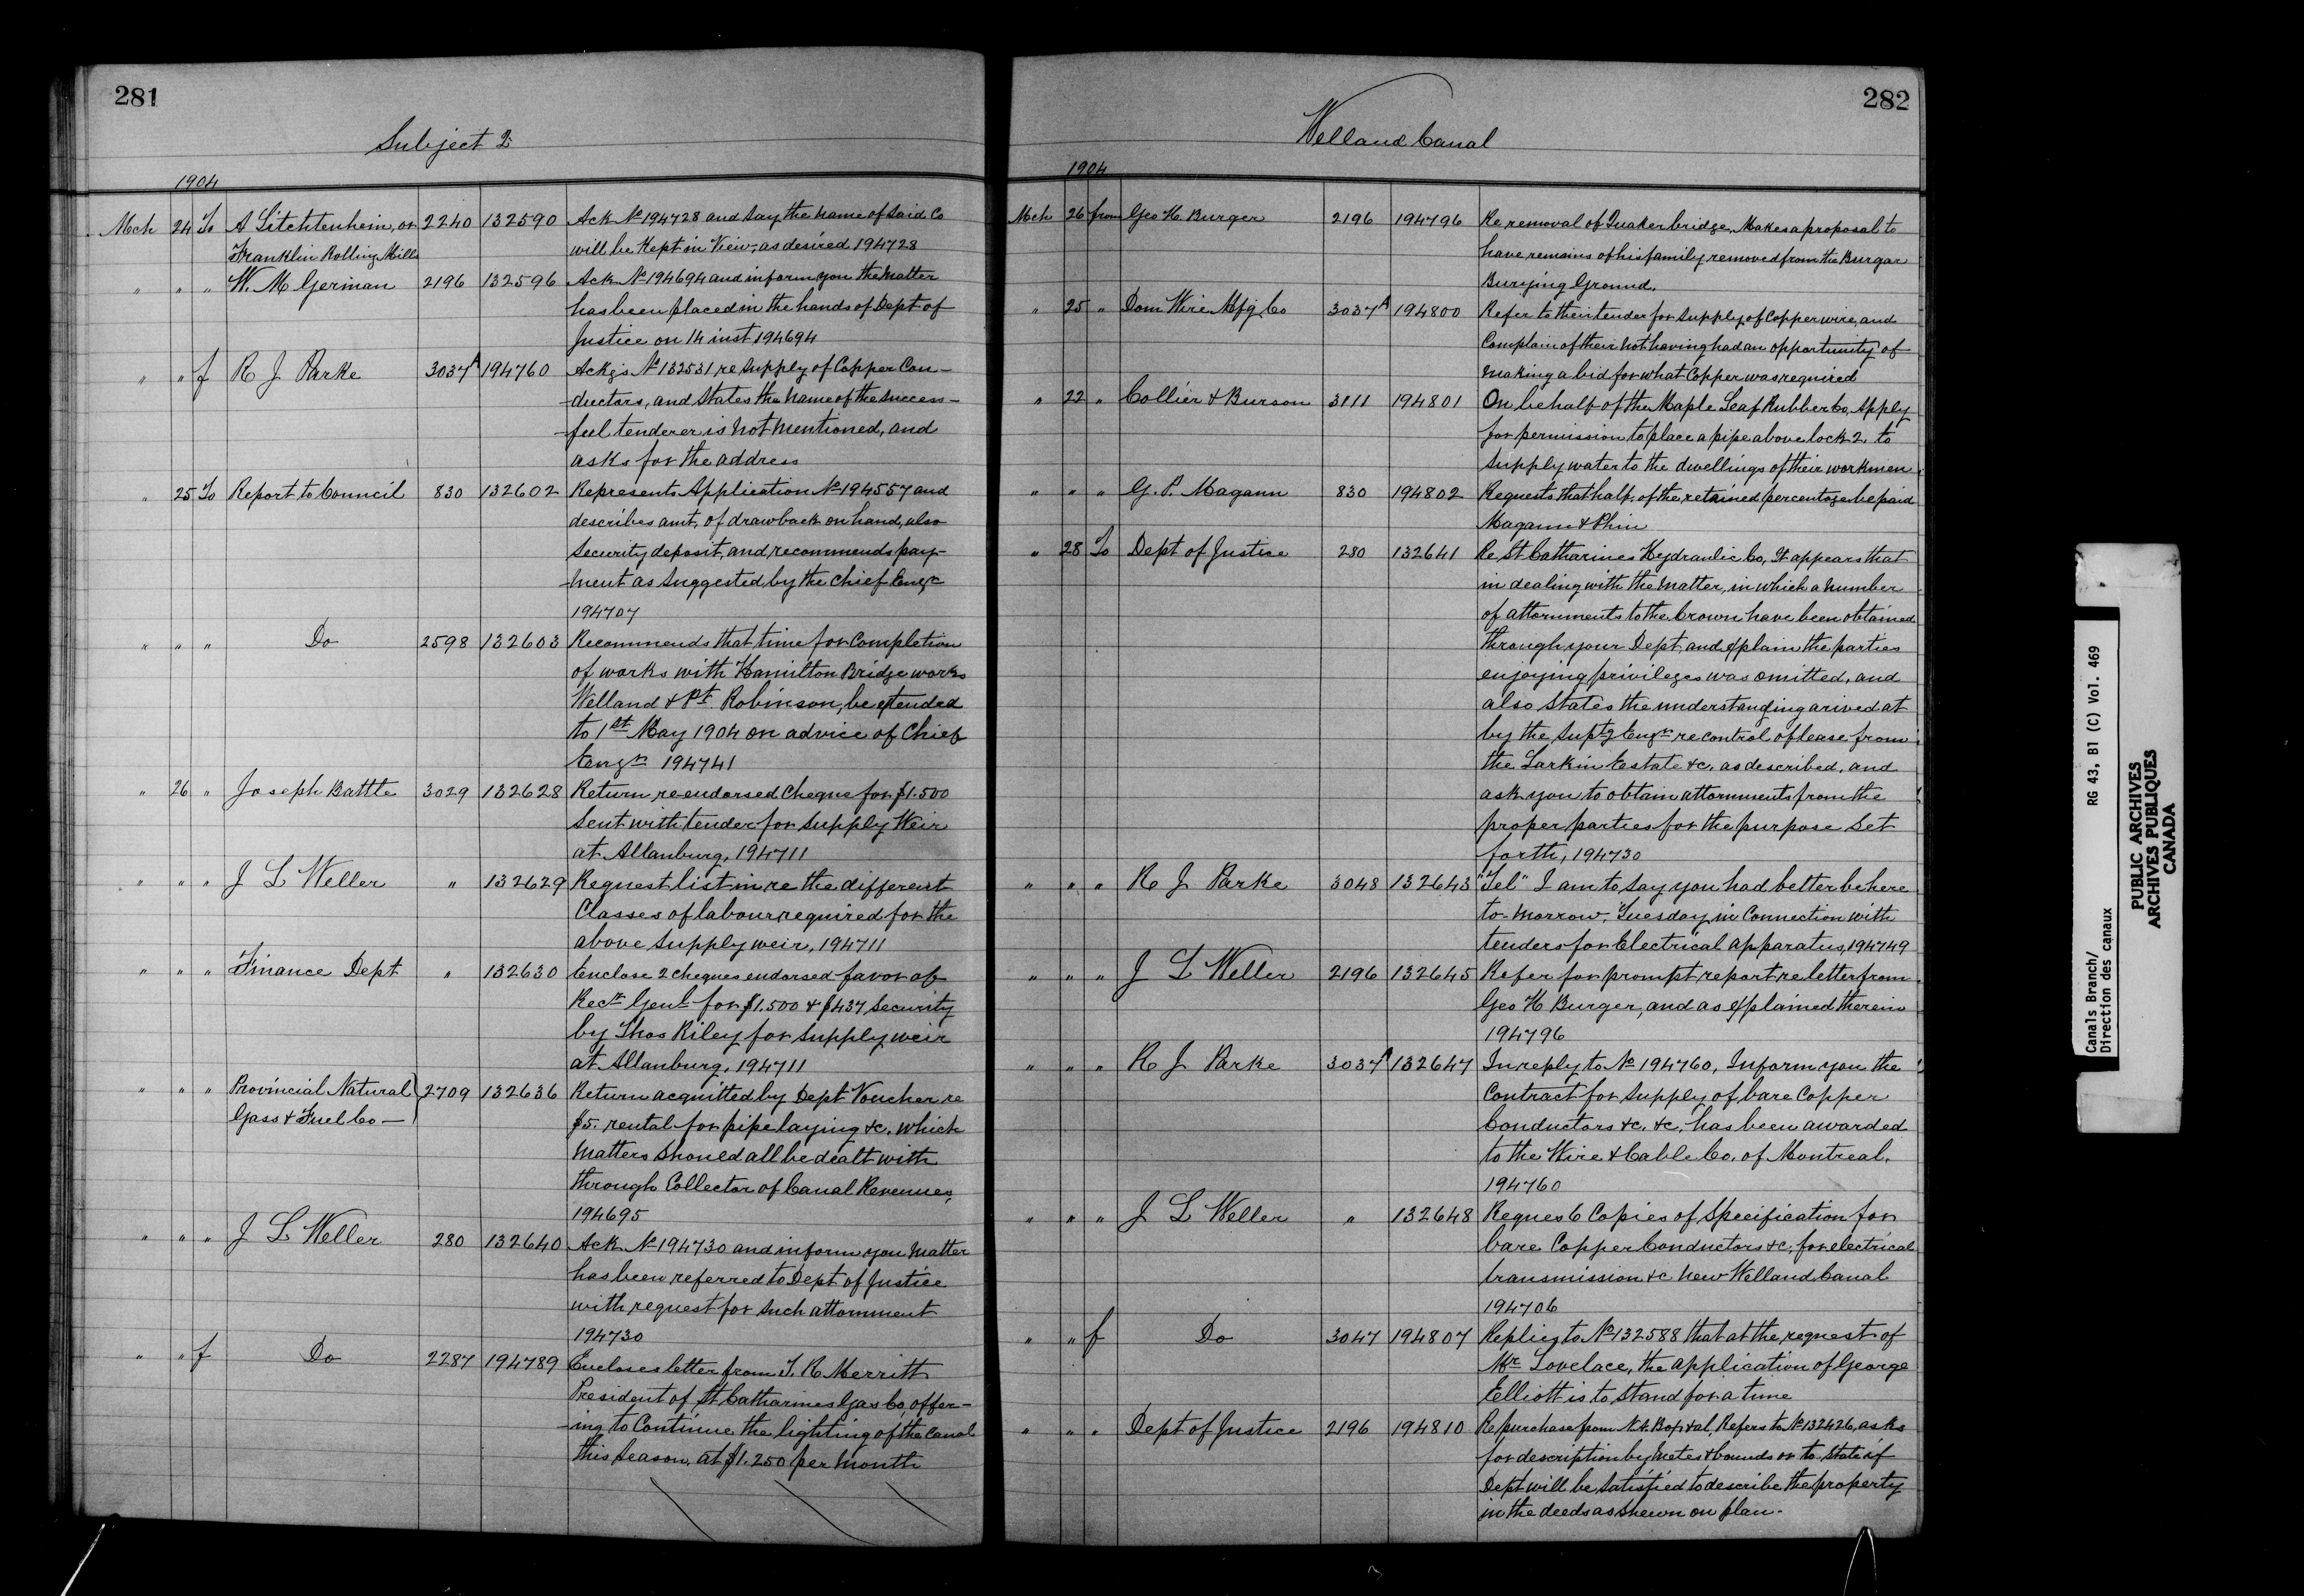 281
Subject 2
1904
Mch 24 To A Litchtenhein, or 2240 132590 Ack No 194728 and say the name of said Co
Franklin Rolling Mills will be Kept in View, as desired 194728
" " " W. M German 2196 132596 Ack No 194694 and inform you the matter
has been placed in the hands of Dept of
Justice on 14 inst 194694
" " f R J Parke 3037A 194760 Ackgs No 132531 re supply of Copper Con-
-ductors, and states the name of the success-
-ful tenderer is not mentioned, and
asks for the address
" 25 To Report to Council 830 132602 Represents Application No 194557 and
describes amt. of drawback on hand, also
security deposit, and recommends pay-
-ment as suggested by the Chief Engr
194707
" " " Do 2598 132603 Recommends that time for completion
of works with Hamilton Bridge works
Welland & Pt. Robinson, be extended
to 1st May 1904 on advice of Chief
Engr 194741
" 26 " Joseph Battle 3029 132628 Return re-endorsed Cheque for $1.500
sent with tender for supply Weir
at Allanburg, 194711
" " " J L Weller " 132629 Request list in re the different
Classes of labour required for the
above supply weir, 194711
" " " Finance Dept " 132630 Enclose 2 cheques endorsed favor of
Recr Genl for $1.500 & $437 security
by Thos Riley for supply weir
at Allanburg, 194711
" " " Provincial Natural 2709 132636 Return acquitted by Dept Voucher re
Gass & Fuel Co — $5. rental for pipe laying &c. which
matters should all be dealt with
through Collector of Canal Revenues,
194695
" " " J L Weller 280 132640 Ack No 194730 and inform you matter
has been referred to Dept of Justice
with request for such attornment
194730
" " f Do 2287 194789 Encloses letter from T. R Merritt
President of St Catharines Gas Co, offer-
-ing to Continue the lighting of the Canal
this season, at $1.250 per month
282
Welland Canal
1904
Mch 26 from Geo H. Burger 2196 194796 Re removal of Quaker bridge, Makes a proposal to
have remains of his family removed from the Burgar
Burying Ground.
" 25 " Dom Wire Mfg Co 3037A 194800 Refer to their tender for supply of Copper wire, and
Complain of their not having had an opportunity of
making a bid for what Copper was required
" 22 " Collier & Burson 3111 194801 On behalf of the Maple Leaf Rubber Co, Apply
for permission to place a pipe above lock 2, to
supply water to the dwellings of their workmen
" " " G. P. Magann 830 194802 Requests that half of the retained percentage be paid
Magann & Phin
" 28 To Dept of Justice 280 132641 Re St Catharines Hydraulic Co, It appears that
in dealing with the matter, in which a number
of attornments to the Crown have been obtained
through your Dept, and explain the parties
enjoying privileges was omitted, and
also states the understanding arived at
by the Suptg Engr re control of lease from
the Larkin Estate &c. as described, and
ask you to obtain attornments from the
proper parties for the purpose set
forth, 194730
" " " R J Parke 3048 132643 "Tel" I am to say you had better be here
to-morrow, Tuesday, in Connection with
tenders for Electrical apparatus, 194749
" " " J L Weller 2196 132645 Refer for prompt report re letter from
Geo H Burger, and as explained therein
194796
" " " R J Parke 3037A 132647 In reply to No 194760, Inform you the
Contract for supply of bare Copper
Conductors &c. &c, has been awarded
to the Wire & Cable Co. of Montreal.
194760
" " " J L Weller " 132648 Reques 6 Copies of Specification for
bare Copper Conductors &c, for electrical
transmission &c new Welland Canal
194706
" " f Do 3047 194807 Replies to No 132588 that at the request of
Mr Lovelace, the application of George
Elliott is to stand for a time
" " " Dept of Justice 2196 194810 Re purchase from et al, Refers to No 132426, asks
for description by metes & bounds or to state if
Dept will be satisfied to describe the property
in the deeds as shewn on plan.
Canals Branch/
Direction des canaux
RG 43, B1 (C) Vol. 469
PUBLIC ARCHIVES
ARCHIVES PUBLIQUES
CANADA